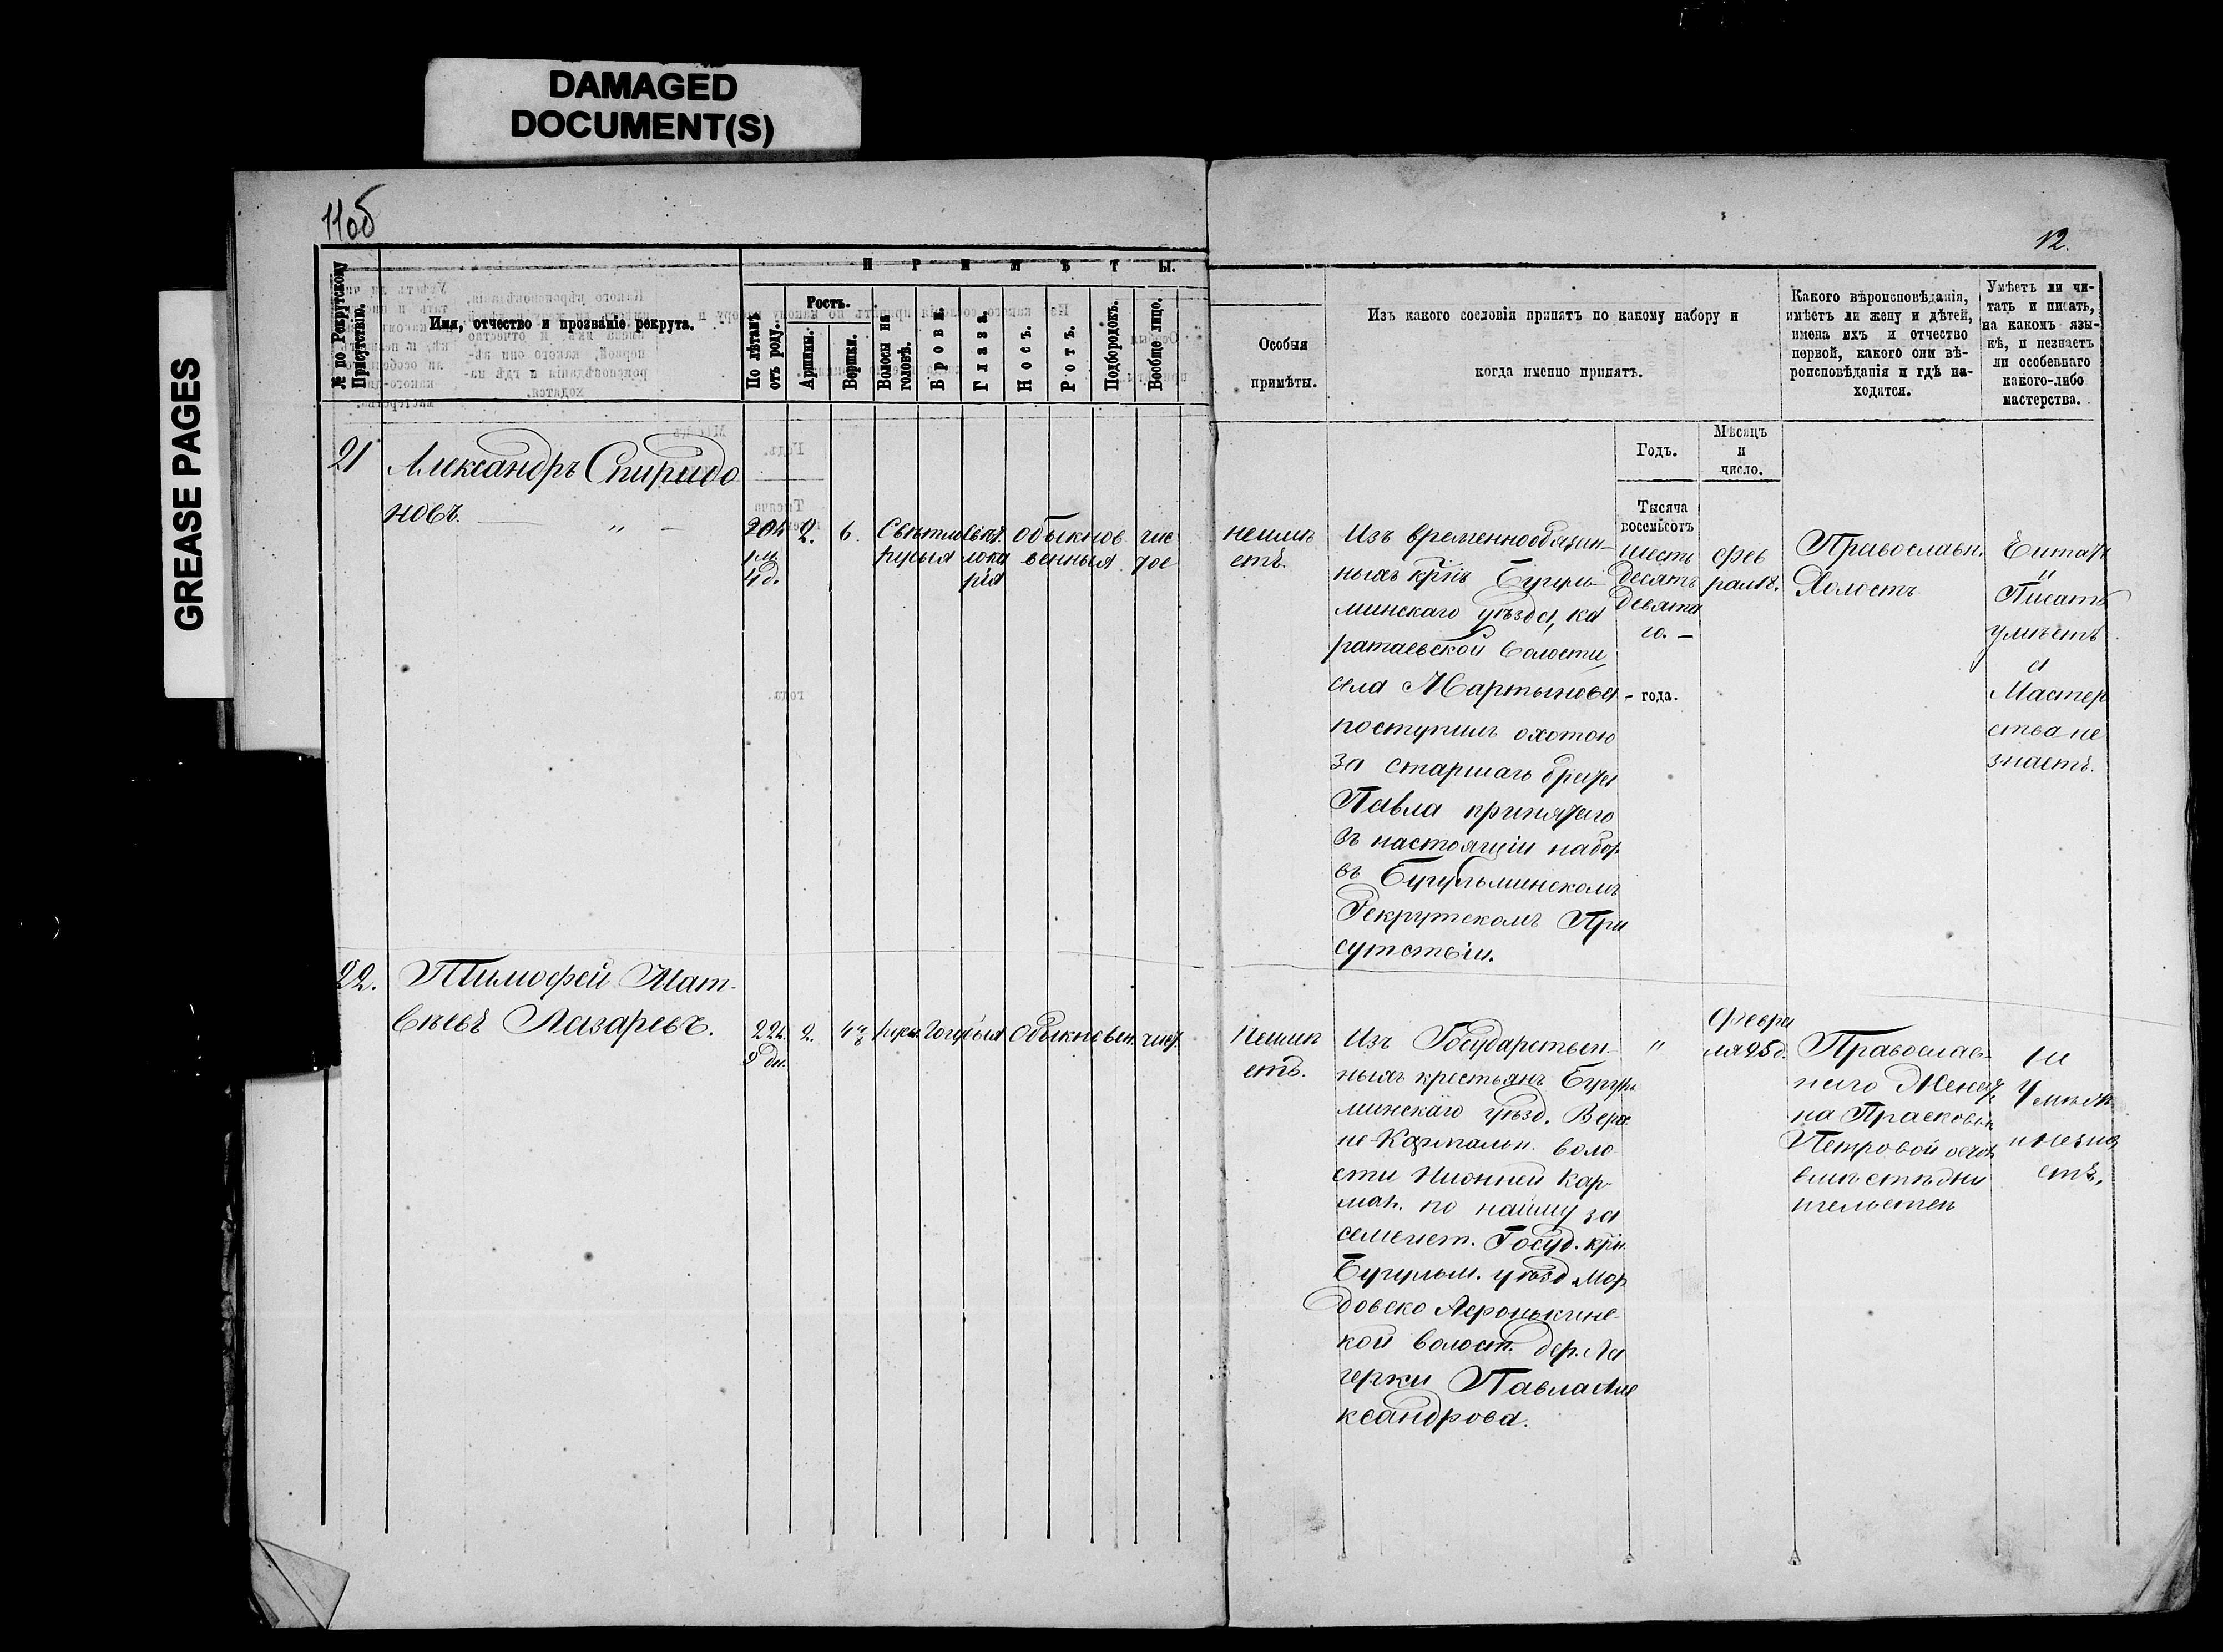 DAMAGED
DOCUMENT(S)
GREASE PAGES
11об
12.
№ по Рекрутскому
Присутствію.
Имя, отчество и прозваніе рекрута.
П Р И М Ѣ Т Ы.
По лѣтамъ
отъ роду.
Ростъ.
Аршины.
Вершки.
Волосы на
головѣ.
Брови.
Глаза.
Носъ.
Ротъ.
Подбородокъ.
Вообще лицо.
Особыя
примѣты.
Изъ какого сословія принятъ по какому набору и
когда именно принятъ.
Какого вѣроисповѣданія,
имѣетъ ли жену и дѣтей,
имена ихъ и отчество
первой, какого они вѣ-
роисповѣданія и гдѣ на-
ходятся.
Умѣетъ ли чи-
тать и писать,
на какомъ язы-
кѣ, и незнаетъ
ли особеннаго
какого-либо
мастерства.
Годъ.
Мѣсяцъ
и
число.
Тысяча
восемьсотъ
шесть
десятъ
девята
го. —
года.
21
Александръ Спиридо
новъ. — „ —
2.
6.
Свѣтло
русыя
обыкнов
венныя
чис
тое
неимѣ
етъ.
Изъ временнообязан-
ныхъ кр꙯нъ Бугуль-
минскаго уѣзда, Ка
ратаевской волости
села Мартынова
поступилъ охотою
за старшаго брата
Павла принятаго
въ настоящій набор
въ Бугульминскомъ
Рекрутскомъ При
сутствіи.
Фев
Православн.
Холостъ
Читать
и
Писать
умѣетъ
а
Мастер
ства не
знаетъ.
22.
Тимофей Мат-
вѣевъ Лазаревъ.
22 л.
9 дн.
2.
Обыкновен.
чист.
Неимѣ
етъ.
Изъ Государствен-
ныхъ крестьянъ Бугуль
минскаго уѣзд. Верх
не-Кармальн. воло
сти Нижней Кар-
мал. по найму за
семейст. Госуд. кр.
Бугульм. уѣзд Мор
довско Афонькинс-
кой волост. дер. Ла
герки Павла Але
ксандрова.
„
Февра
ля 25 д.
Православ-
наго Женатъ
на Прасковьѣ
Петровой
не
Умѣетъ
и незна
етъ.